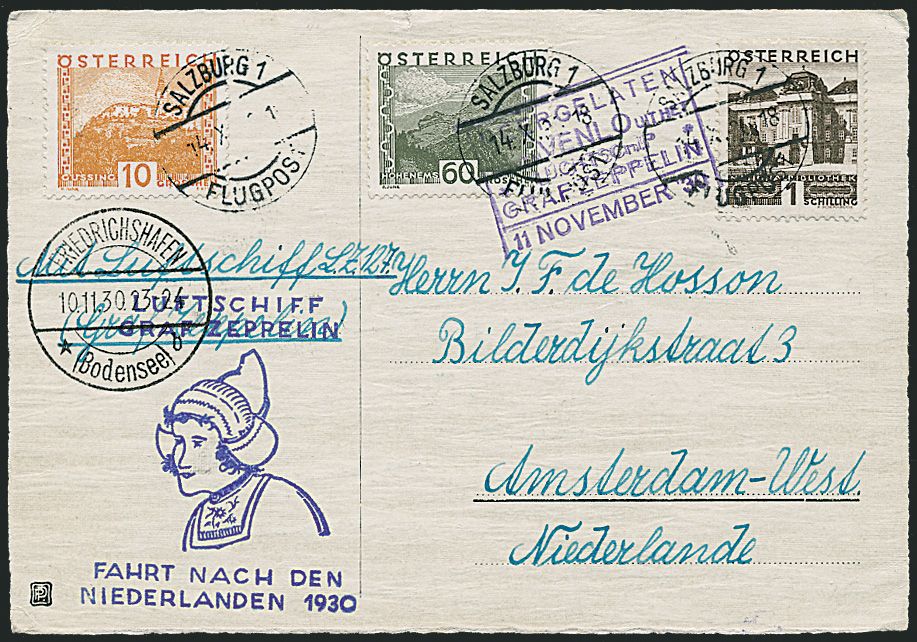 ÖSTERREICH
GÜSSING
10
GROSCHEN
SALZBURG 1
14. X.
FLUGPOST
ÖSTERREICH
HOHENEMS
60
SALZBURG 1
14. X. 3 18
FLUGPOST
ÖSTERREICH
1
SCHILLING
SALZBURG 1
18
FLUGPOST
VENLO UIT HET
LUCHTSCHIP
GRAF ZEPPELIN
11 NOVEMBER 30
FRIEDRICHSHAFEN
10.11.30.23-24
★ (Bodensee) d
Mit Luftschiff L.Z.127.
(Graf Zeppelin)
LUFTSCHIFF
GRAF ZEPPELIN
Herrn J. F. de Hosson
Bilderdijkstraat 3
Amsterdam-West.
Niederlande
FAHRT NACH DEN
NIEDERLANDEN 1930